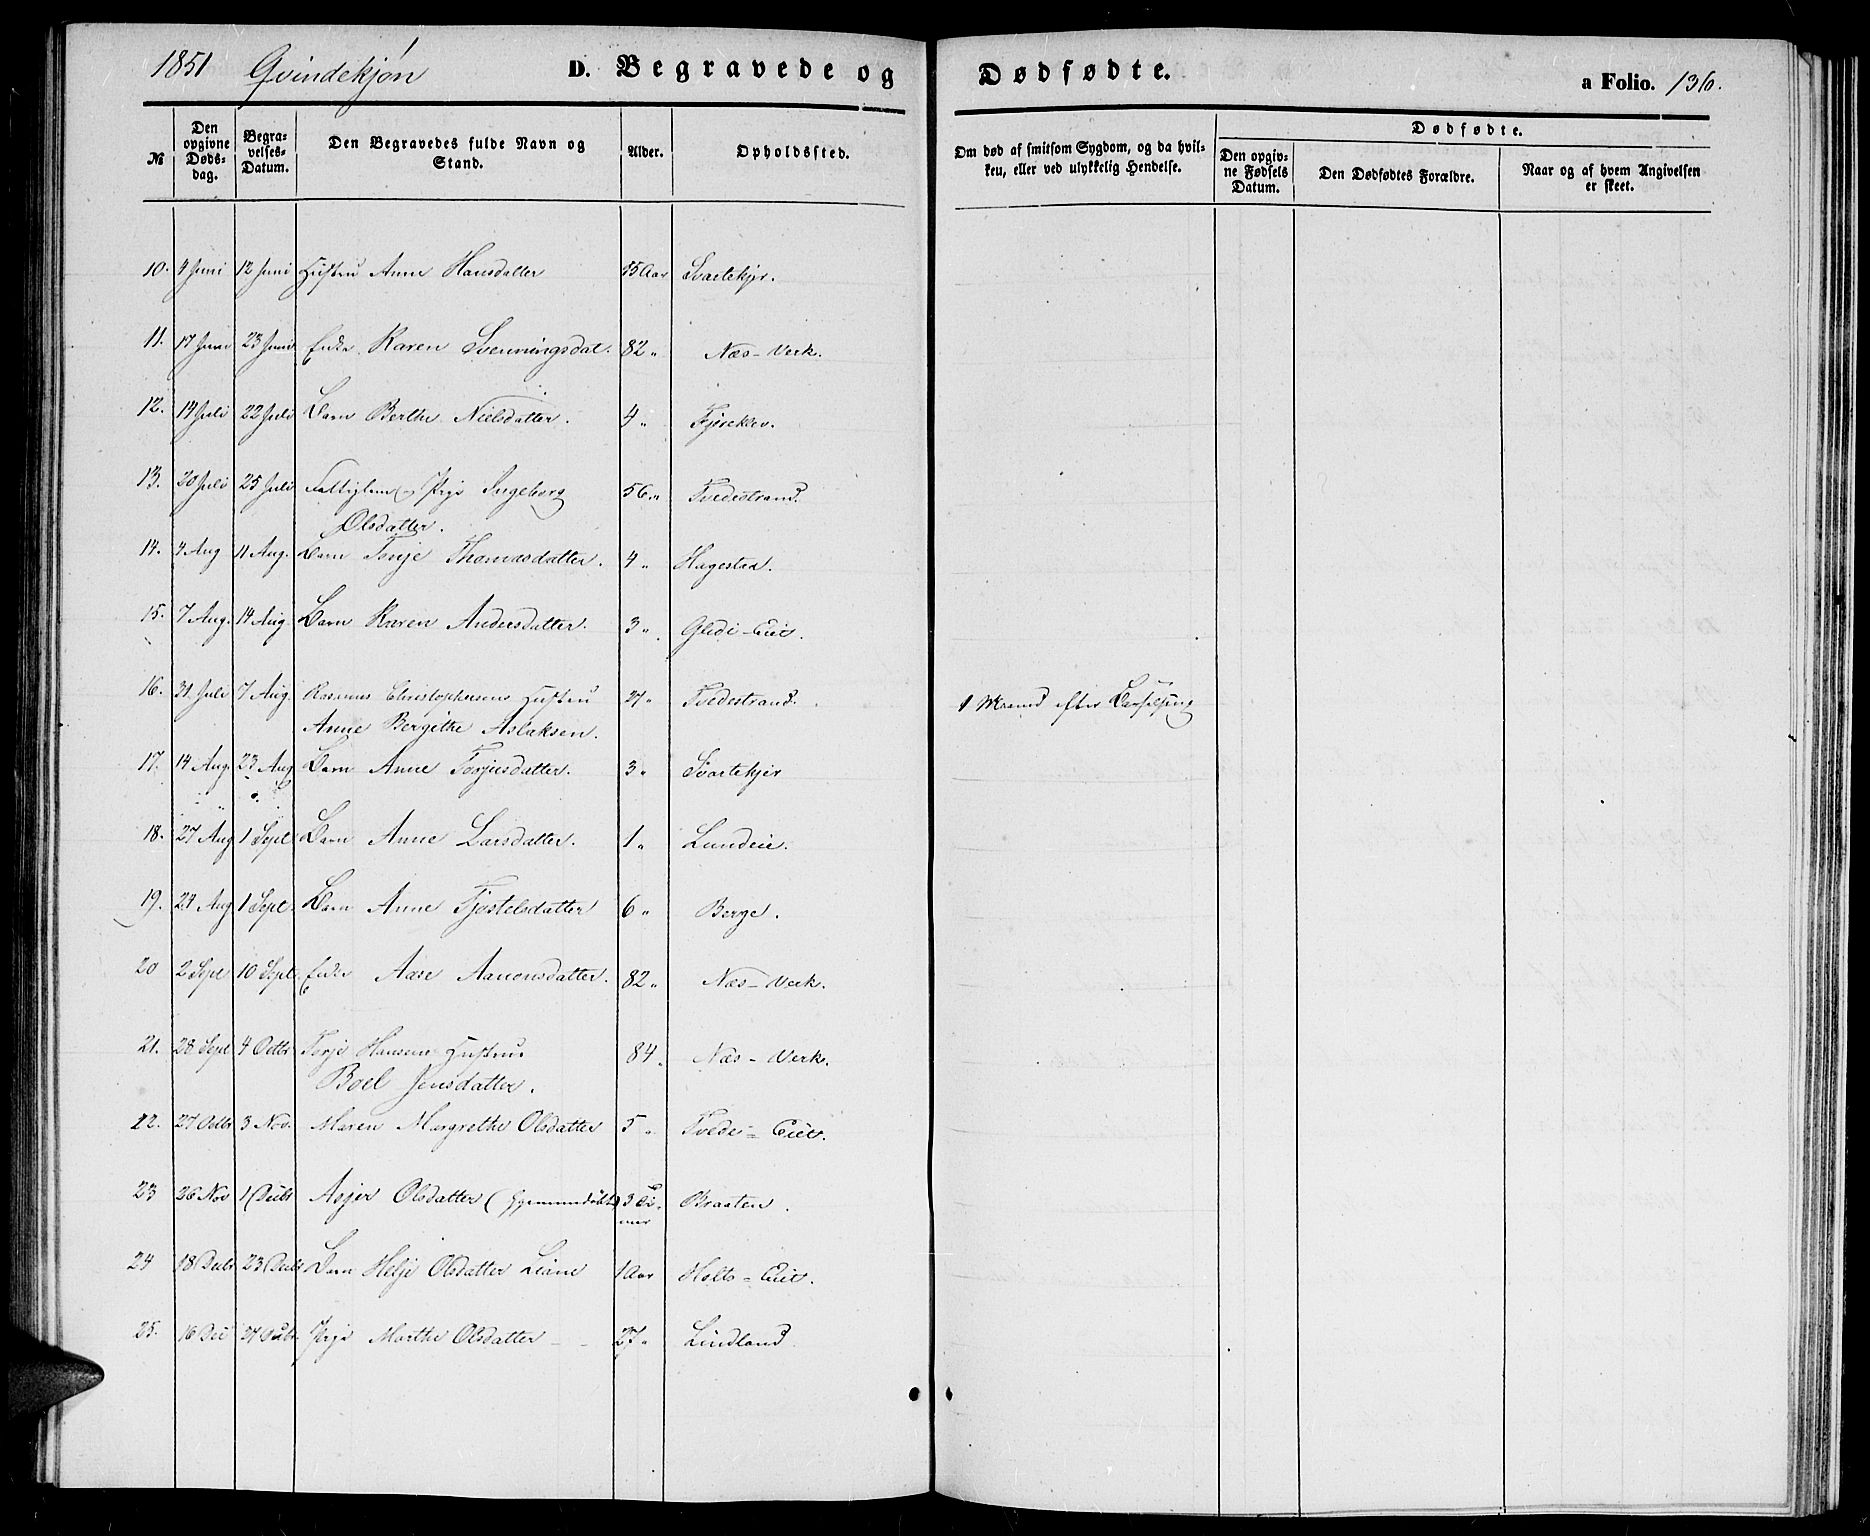 1851 Qvindekjøn D. Begravede og Dødfødte. a Folio. 136.
№ Den opgivne Døds-dag. Begra-velses-Datum. Den Begravedes fulde Navn og Stand. Alder. Opholdssted. Om død af smitsom Sygdom, og da hvil-ken, eller ved ulykkelig Hendelse. Dødfødte. Den opgiv-ne Fødsels Datum. Den Dødfødtes Forældre. Naar og af hvem Angivelsen er skeet.
10. 4 Juni 12 Juni Hustru Anne Hansdatter Aar Svartekjer.
11. 17 Juni 23 Juni Enke Karen Svenningsdat. 82 " Næs-Verk.
12. 14 Juli 22 Juli Barn Berthe Nielsdatter. 4 "
13. 20 Juli 25 Juli Pige Ingeborg 56 " Tvedestrand.
Olsdatter.
14. 4 Aug 11 Aug. Barn Terje Thomasdatter. 4 " Hagestad.
15. 7 Aug. 14 Aug. Barn Karen Andersdatter. 3 "
16. 31 Juli 7 Aug. Rasmus Christophersens Hustru 27 " Tvedestrand. 1 Maaned efter Barselseng
Anne Bergethe Aslaksen.
17. 14 Aug. 23 Aug Barn Anne Terjusdatter. 3 " Svartekjer
18. 27 Aug 1 Sept Barn Anne Larsdatter. 1 " Lundeie.
19. 24 Aug 1 Sept. Barn Anne Kjøstelsdatter 6 " Berge.
20 2 Sept 10 Sept. Enke Aase Aanonsdatter. 82 " Næs-Verk.
21. 28 Sept 4 Octbr Terje Hansens Hustru 84 " Næs-Verk.
Boel Jensdatter.
22. 27 Octbr 3 Nov. Maren Margrethe Olsdatter 5 " Tvede-Eiet.
23 26 Nov 1 Decbr Asjer Olsdatter (hjemmedøbt) 3 Braaten.
24 18 Decbr 23 Decbr Barn Helje Olsdatter Liane 1 Aar Holts-Eiet.
25. 16 Dec 27 Decbr. Pige Marthe Olsdatter 27 " Lindland